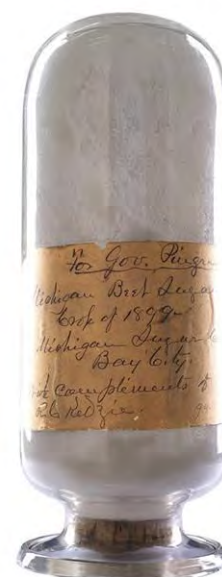 For Gov. Pingre
Michigan Beet Sugar
Crop of 1899
Michigan Sugar C
Bay City.
complements of
R.C. Kedzie.